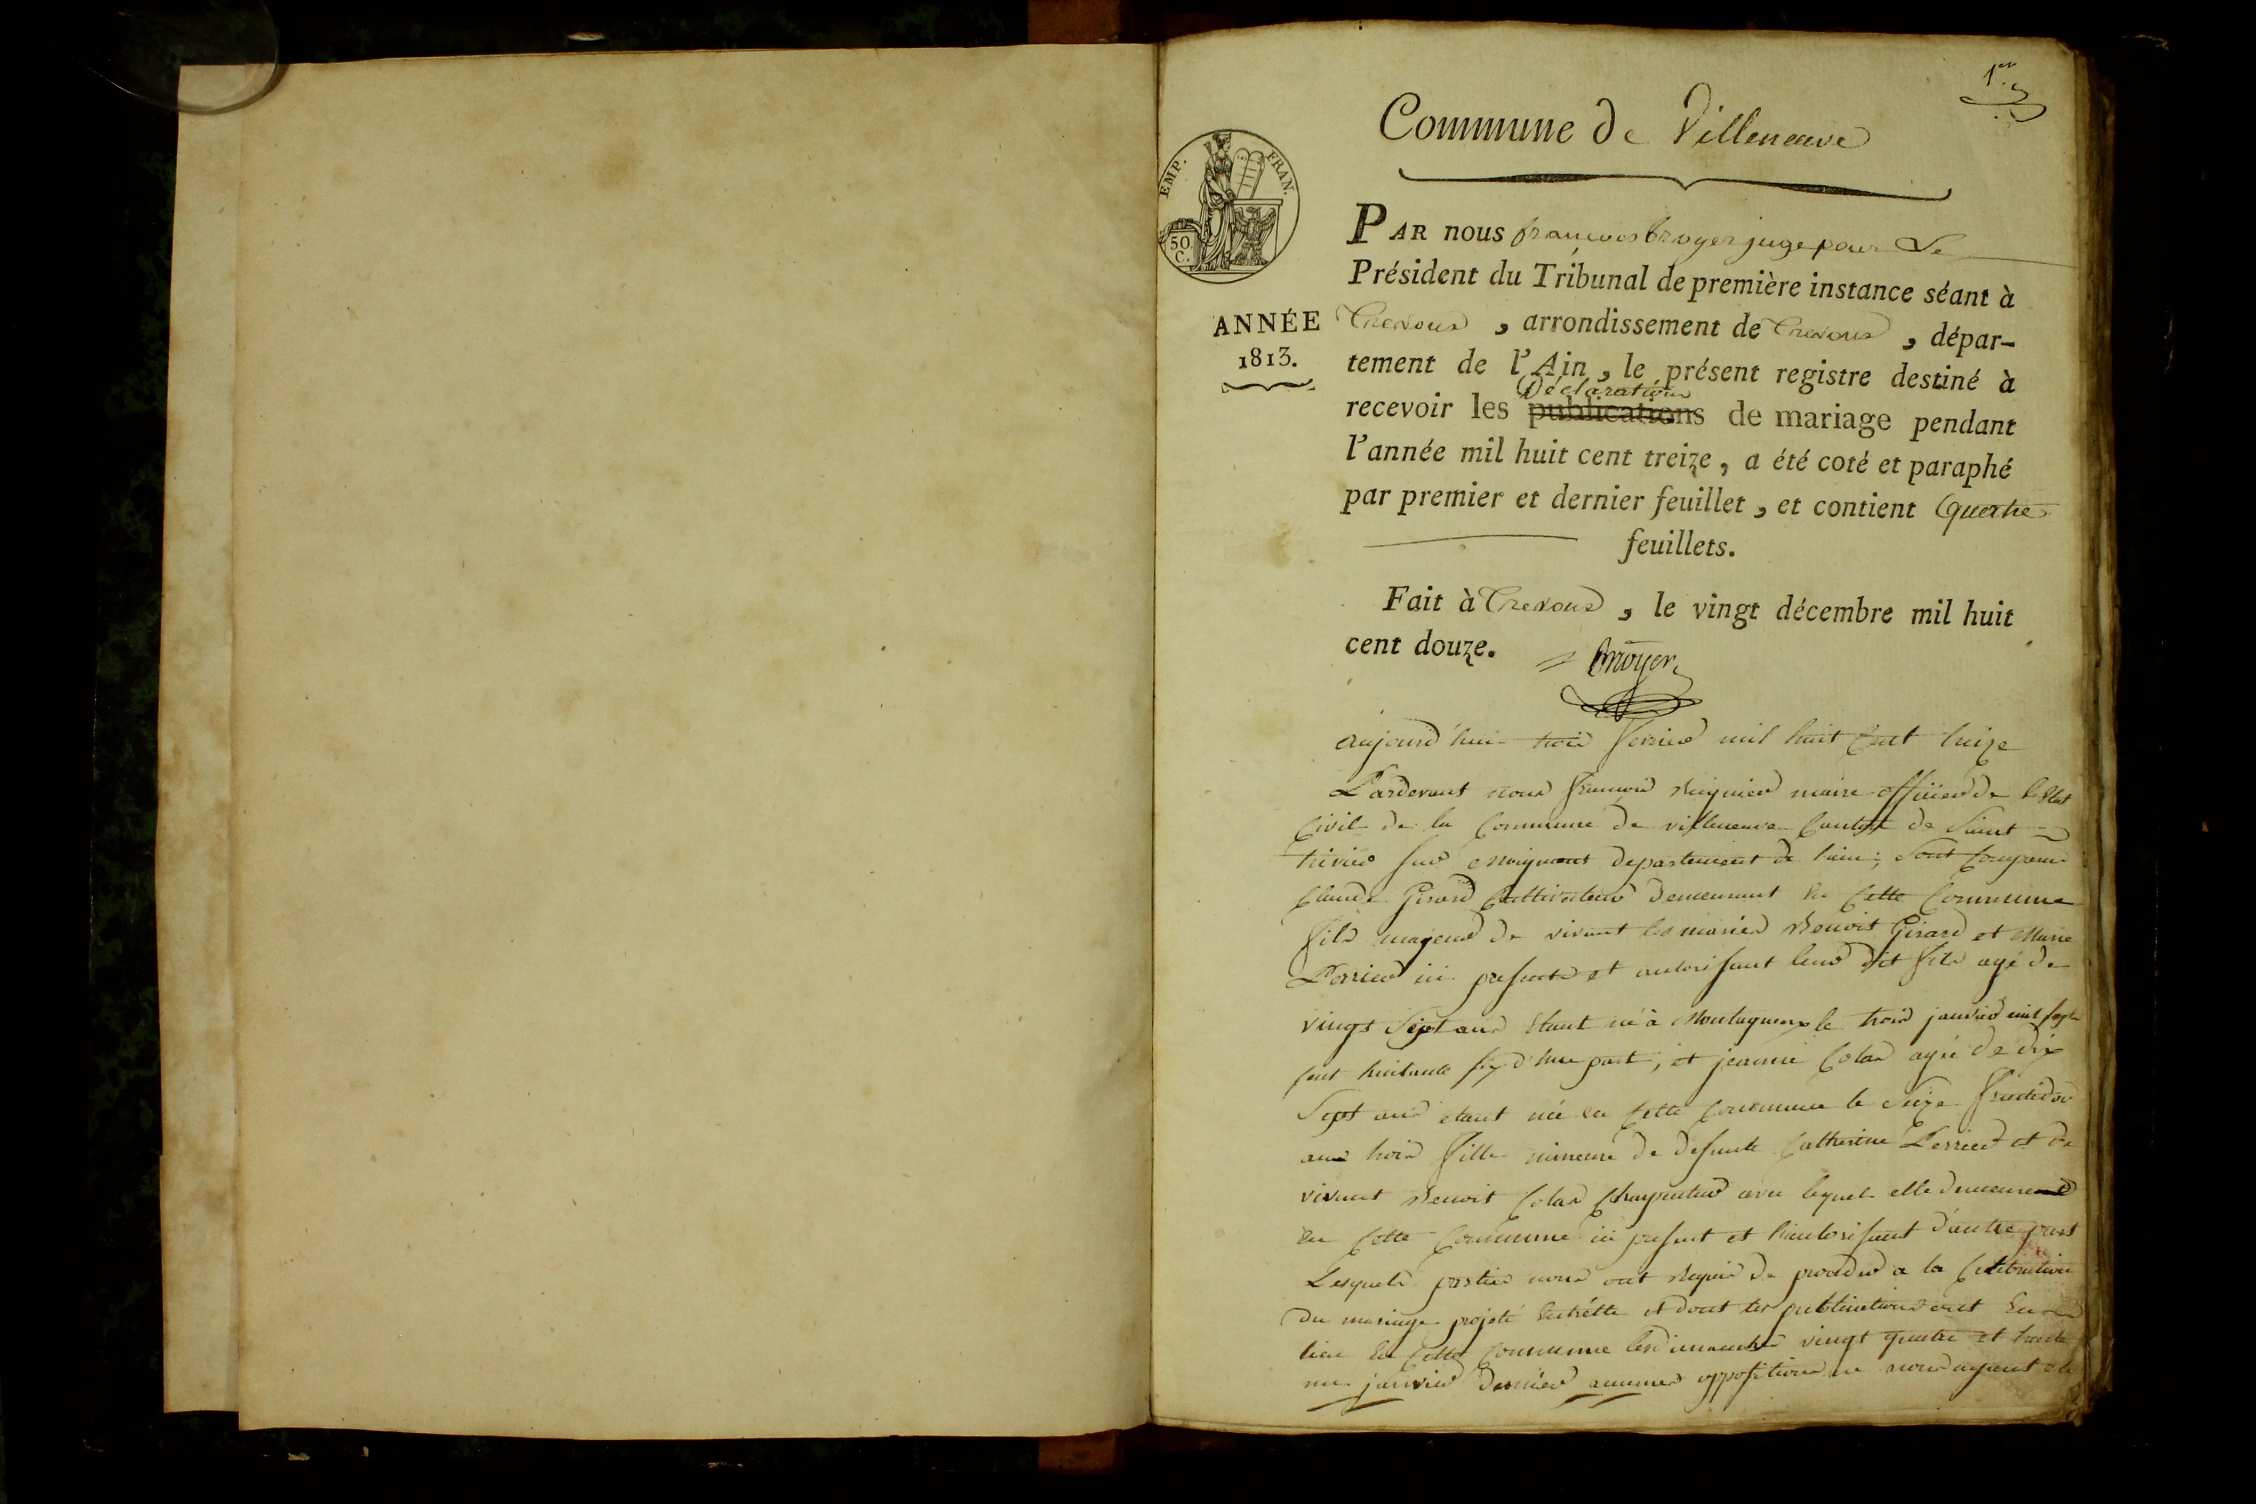 1er
Commune de Villeneuve
EMP. FRAN.
50 C.
ANNÉE
1813.
PAR nous françois broyer juge pour Le
Président du Tribunal de première instance séant à
Trevoux, arrondissement de Trevoux, dépar-
tement de l'Ain, le présent registre destiné à
Déclarations
recevoir les publications de mariage pendant
l'année mil huit cent treize, a été coté et paraphé
par premier et dernier feuillet, et contient Quatre
feuillets.
Fait à Trevoux, le vingt décembre mil huit
cent douze.
Broyer
aujourd'hui trois fevrier mil huit Cent treize
Pardevant nous François maire officier de l'Etat
Civil de la Commune de villeneuve Canton de Saint
trivier sur moignans departement de lain; Sont Comparu
Claude Girard Cultivateur demeurant en Cette Commune
fils majeur de vivant les mariés Benoit Girard et Marie
Perrier ici presents et autorisant leur dit fils agé de
vingt Sept ans etant né à Montagneux le trois janvier mil sept
cent huitante six d'une part; et jeanne Colas agée de dix
Sept ans etant née en Cette Commune le Seize fructidor
an trois fille mineure de defunte Catherine Perrier et de
vivant Benoit Colas Charpentier avec lequel elle demeure
en Cette Commune ici present et l'autorisant d'autre part
Lesquels parties nous ont requis de proceder a la Celebration
du mariage projeté entr'elle et dont les publications ont Eu
lieu en Cette Commune les dimanches vingt quatre et trente
un janvier dernier aucunes oppositions ne nous ayant été